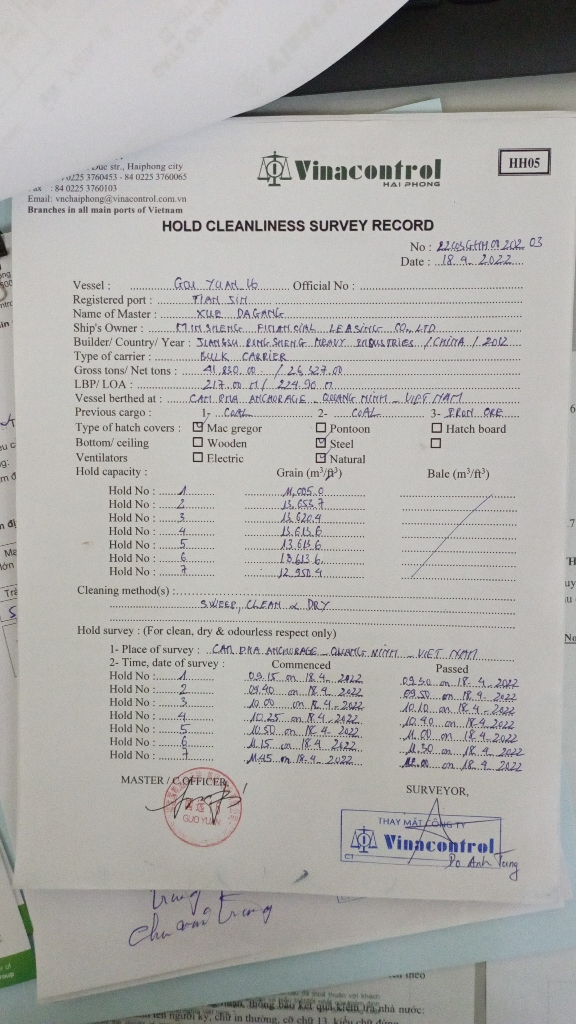 Duc str., Haiphong city
0225 3760453 - 84 0225 3760065
: 84 0225 3760103
Email: vnchaiphong@vinacontrol.com.vn
Branches in all main ports of Vietnam
Vinacontrol
HAI PHONG
HH05
HOLD CLEANLINESS SURVEY RECORD
No :
Date : 18.4.2022
Vessel : Official No :
Registered port : TIAN JIN
Name of Master : XUE DAGANG
Ship's Owner : MINSHENG FINANCIAL LEASING CO., LTD
Builder/ Country/ Year : JIANGSU RONGSHENG HEAVY INDUSTRIES / CHINA / 2012
Type of carrier : BULK CARRIER
Gross tons/ Net tons : 41,830.00 / 26,527.00
LBP/ LOA : 217.00 M / 224.90 M
Vessel berthed at : CAM PHA ANCHORAGE - QUANG NINH - VIET NAM
Previous cargo : 1- COAL 2- COAL 3- IRON ORE
Type of hatch covers : Mac gregor Pontoon Hatch board
Bottom/ ceiling Wooden Steel
Ventilators Electric Natural
Hold capacity : Grain (m³/ft³) Bale (m³/ft³)
Hold No : 1 11,005.0
Hold No : 2 13,653.7
Hold No : 3 13,620.4
Hold No : 4 13,613.6
Hold No : 5 13,613.6
Hold No : 6 13,613.6
Hold No : 7 12,950.4
Cleaning method(s) :
SWEEP, CLEAN & DRY
Hold survey : (For clean, dry & odourless respect only)
1- Place of survey : CAM PHA ANCHORAGE - QUANG NINH - VIET NAM
2- Time, date of survey : Commenced Passed
Hold No : 1 09.15 on 18.4.2022 09.30 on 18.4.2022
Hold No : 2 09.40 on 18.4.2022 09.50 on 18.4.2022
Hold No : 3 10.00 on 18.4.2022 10.10 on 18.4.2022
Hold No : 4 10.25 on 18.4.2022 10.40 on 18.4.2022
Hold No : 5 10.50 on 18.4.2022 11.00 on 18.4.2022
Hold No : 6 11.15 on 18.4.2022 11.30 on 18.4.2022
Hold No : 7 11.45 on 18.4.2022 12.00 on 18.4.2022
MASTER / C.OFFICER, SURVEYOR,
GUO YUAN
THAY MẶT CÔNG TY
Vinacontrol
Do Anh Tung